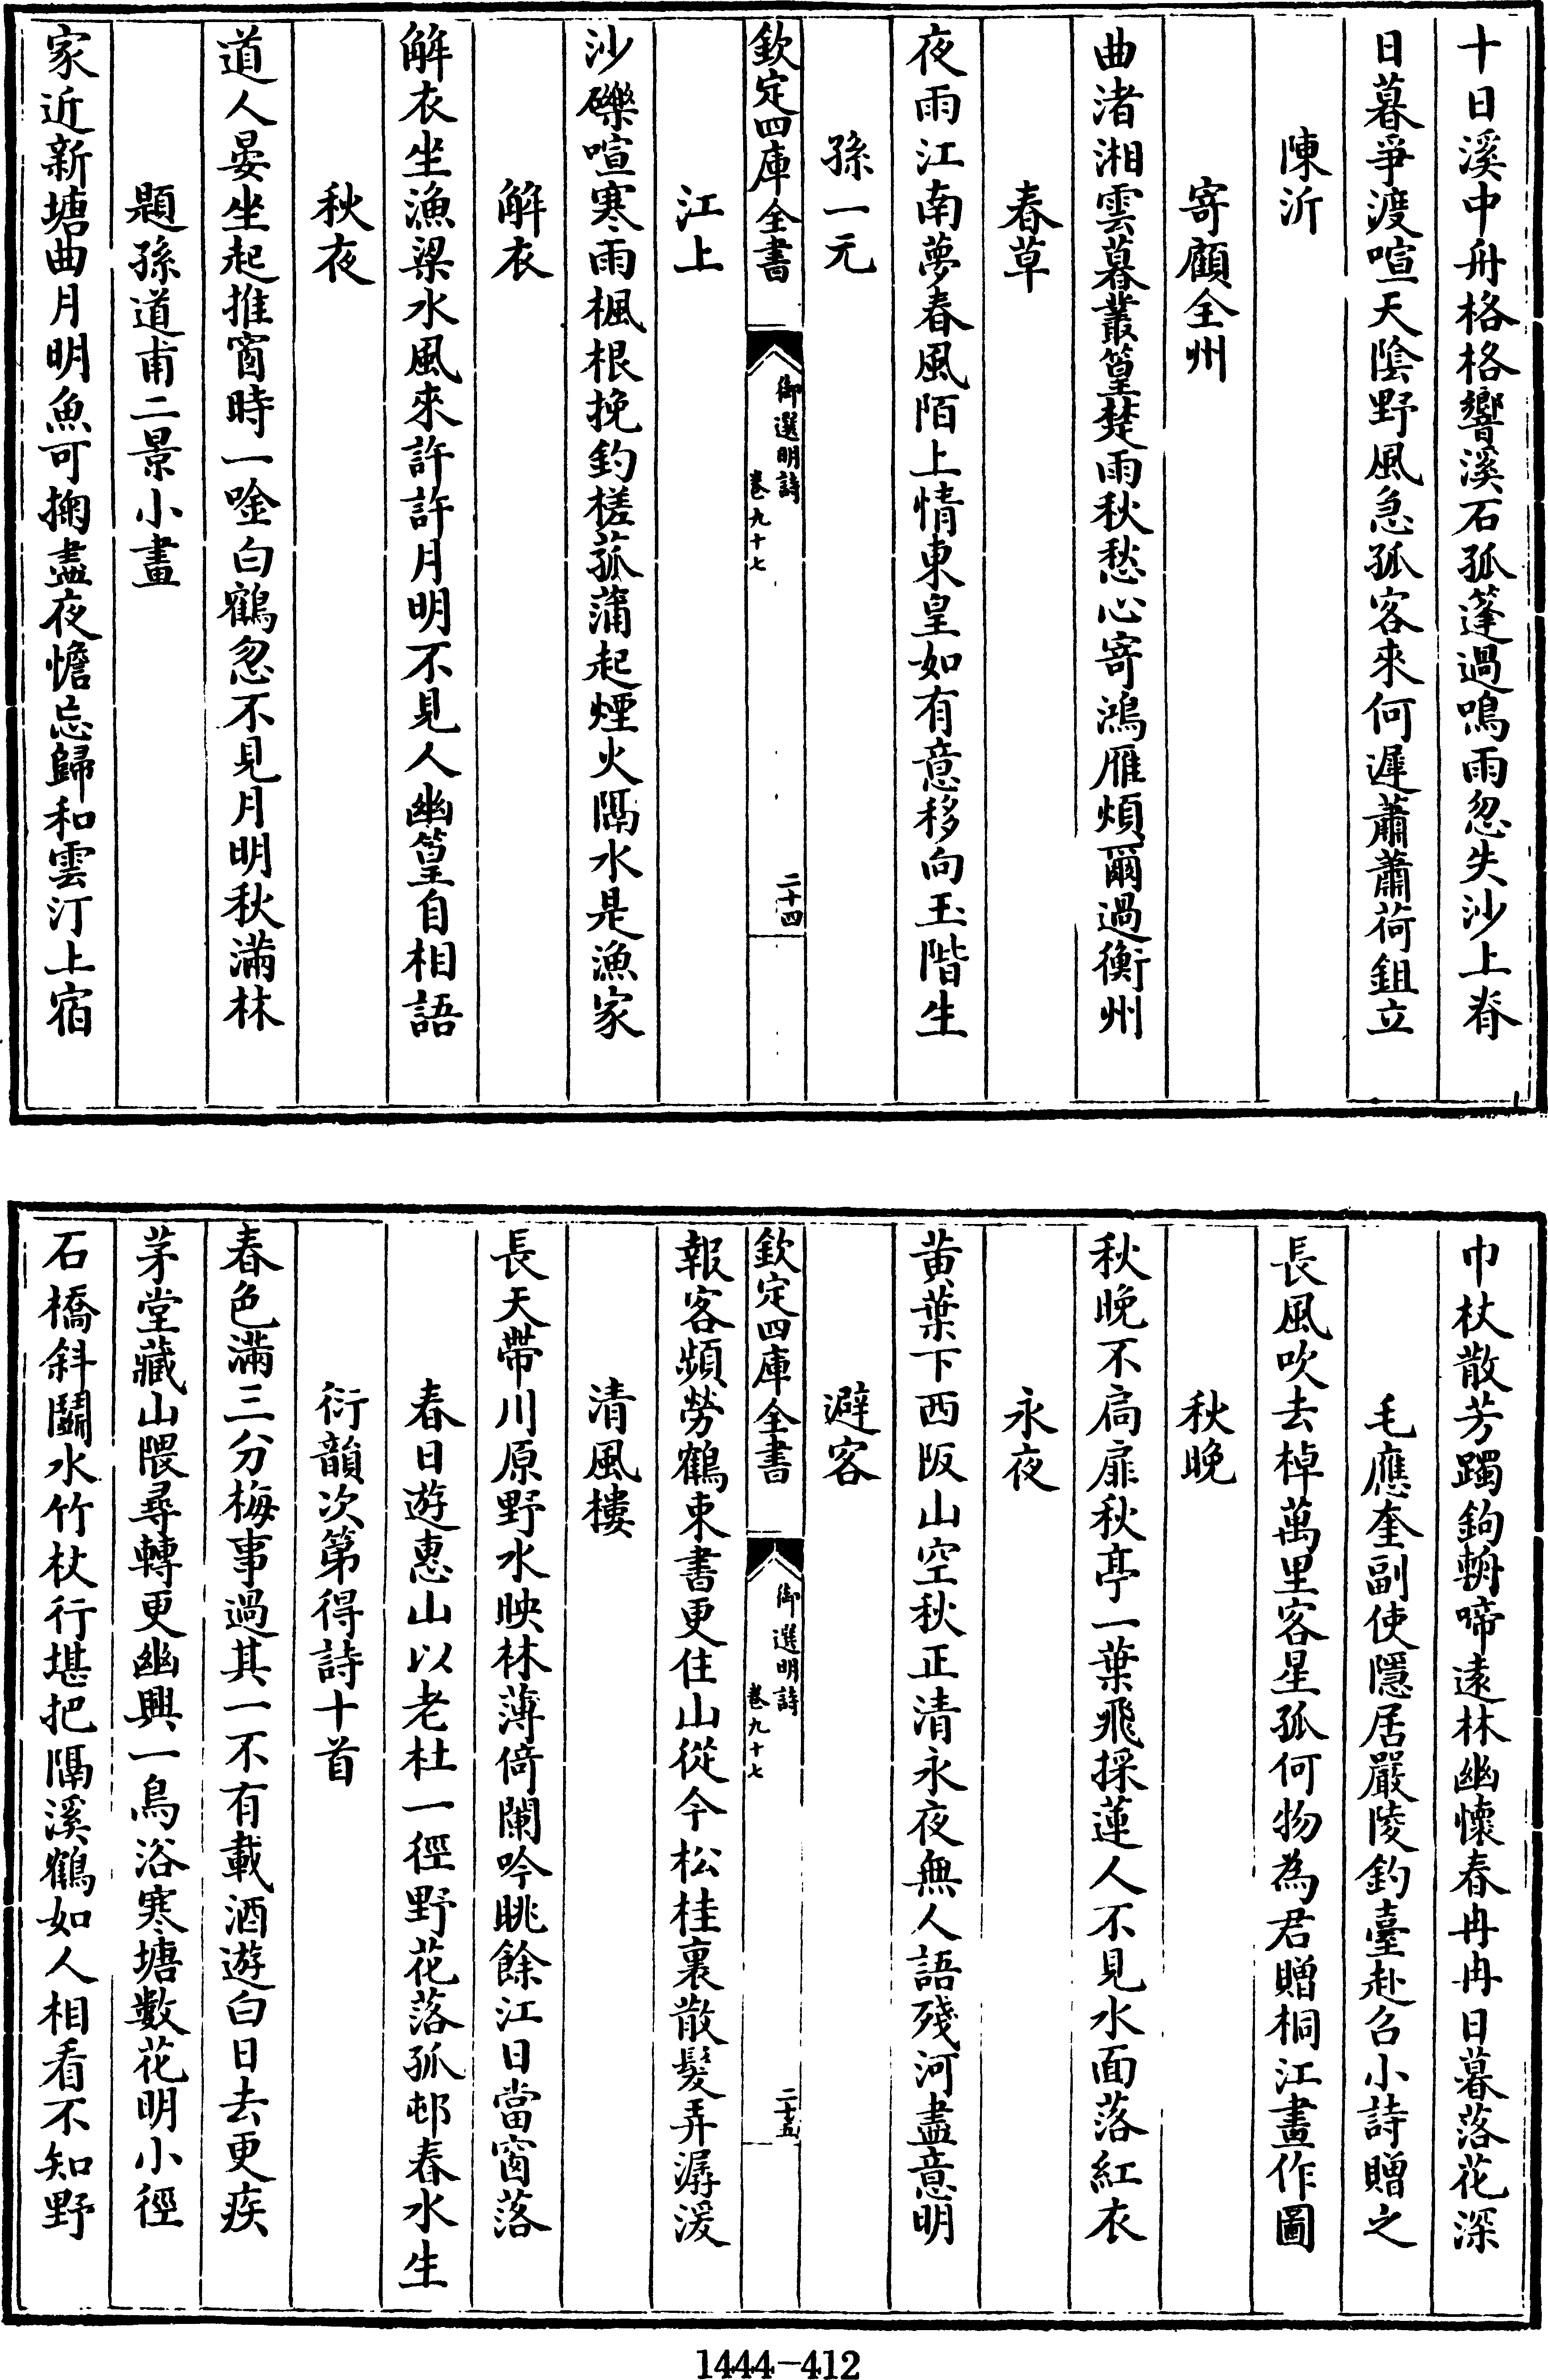 十日溪中舟格格響溪石孤篷過鳴雨忽失沙上脊
日暮爭渡喧天陰野風急孤客來何遲蕭蕭荷鉏立
陳沂
寄顧全州
曲渚湘雲暮叢篁楚雨秋愁心寄鴻雁煩爾過衡州
春草
夜雨江南夢春風陌上情東皇如有意移向玉階生
孫一元
欽定四庫全書
御選明詩
卷九十七
二十四
江上
沙礫喧寒雨楓根挽釣槎菰蒲起煙火隔水是漁家
解衣
解衣坐漁梁水風來許許月明不見人幽篁自相語
秋夜
道人晏坐起推窗時一唫白鶴忽不見月明秋滿林
題孫道甫二景小畫
家近新塘曲月明魚可掬盡夜憺忘歸和雲汀上宿
巾杖散芳躅鉤輈啼遠林幽懷春冉冉日暮落花深
毛應奎副使隱居嚴陵釣臺赴召小詩贈之
長風吹去棹萬里客星孤何物為君贈桐江畫作圖
秋晚
秋晚不扃扉秋亭一葉飛採蓮人不見水面落紅衣
永夜
黃葉下西阪山空秋正清永夜無人語殘河盡意明
避客
欽定四庫全書
御選明詩
卷九十七
二十五
報客頻勞鶴束書更住山從今松桂裏散髮弄潺湲
清風樓
長天帶川原野水映林薄倚闌吟眺餘江日當窗落
春日遊惠山以老杜一徑野花落孤邨春水生
衍韻次第得詩十首
春色滿三分梅事過其一不有載酒遊白日去更疾
茅堂藏山隈尋轉更幽興一鳥浴寒塘數花明小徑
石橋斜鬬水竹杖行堪把隔溪鶴如人相看不知野
1444-412